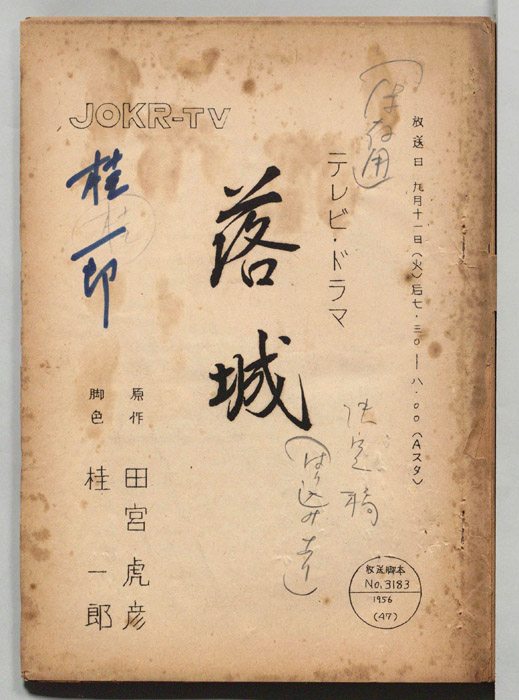 放送日 九月十一日(火)后七・三〇—八・〇〇(Aスタ)
テレビ・ドラマ
決定稿
(はり込みより)
落城
JOKR-TV
桂一郎
桂
原作 田宮虎彦
脚色 桂一郎
放送脚本
No,3183
1956
(47)